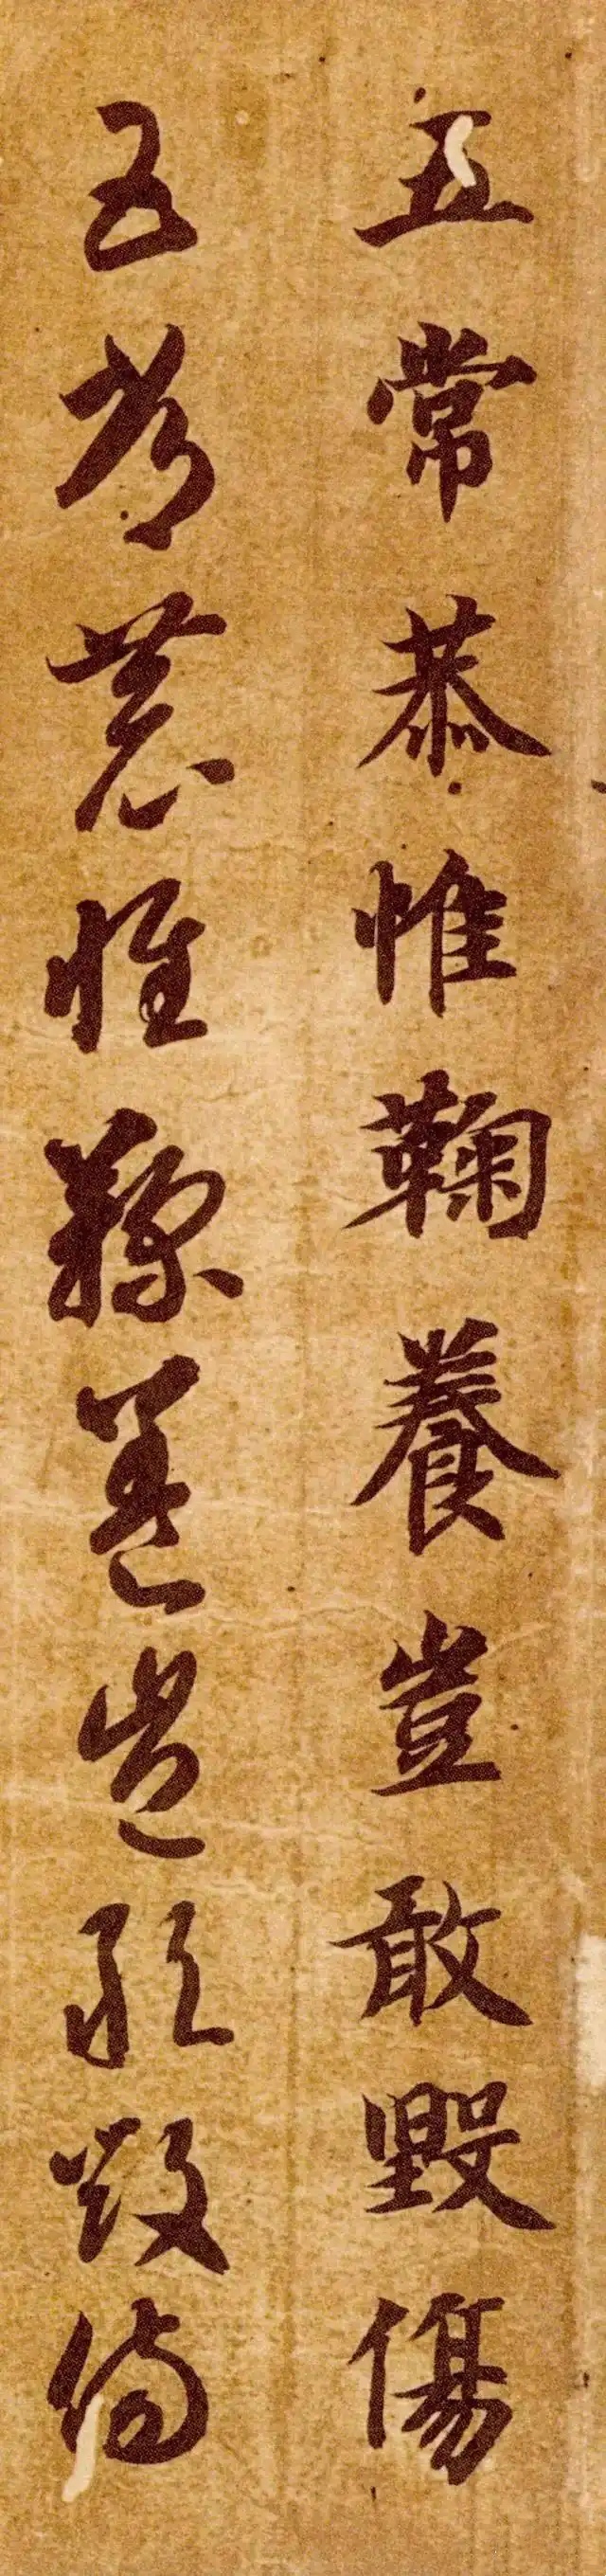 五常恭惟鞠養豈敢毀傷
五常恭惟鞠養豈敢毀傷